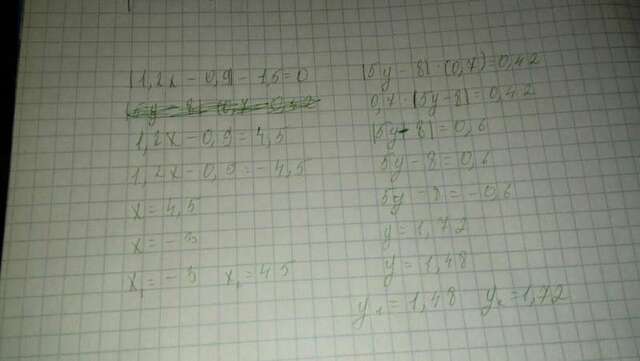 |1,2x - 0,9| - 1,5 = 0
1,2x - 0,9 = 4,5
1,2x - 0,9 = - 4,5
x = 4,5
x = - 3
x₁ = - 3 x₂ = 4,5
|5y - 8| · (0,7) = 0,42
0,7 · |5y - 8| = 0,42
|5y - 8| = 0,6
5y - 8 = 0,6
5y - 8 = - 0,6
y = 1,72
y = 1,48
y₁ = 1,48 y₂ = 1,72